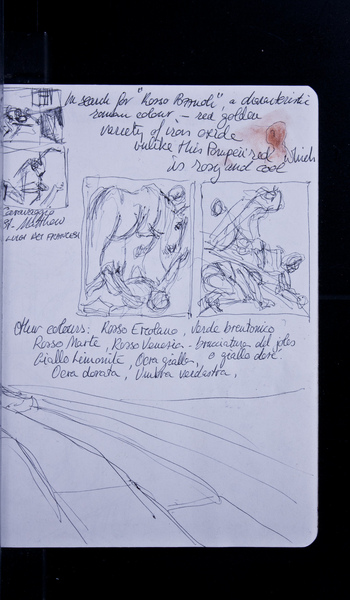 In search for "Rosso Pozzuoli", a characteristic
roman colour, - red golden
variety of iron oxide
unlike this Pompeii red which
is rosy and cool
Caravaggio
St. Matthew
LUIGI DEI FRANCESI
Other colours: Rosso Ercolano, Verde brentonico
Rosso Marte, Rosso Venezia - bruciatura del
Giallo Limonite, Ocra gialla, o giallo doré
Ocra dorata, Umbra verdastra,